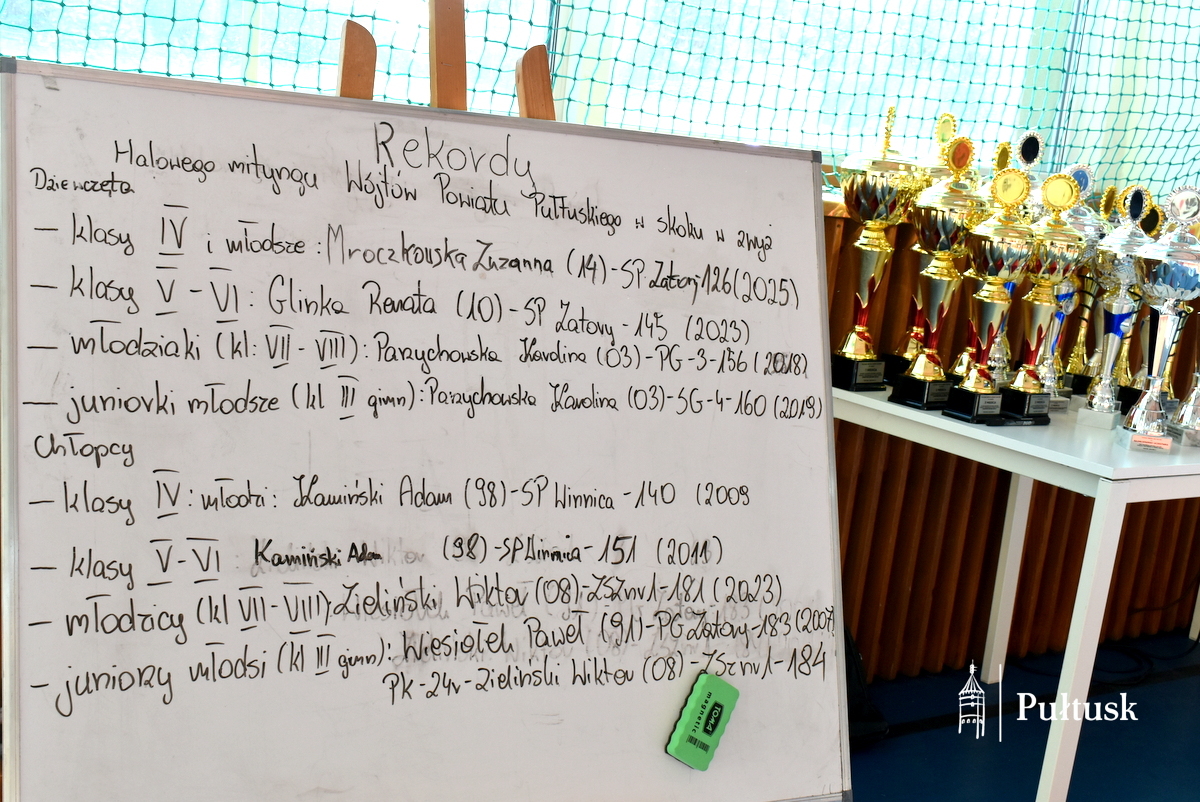 Rekordy
Halowego mityngu Wójtów Powiatu Pułtuskiego w skoku w zwyż
Dziewczęta
— klasy IV i młodsze : Mroczkowska Zuzanna (14)-SP Zatory 126 (2025)
— klasy V - VI : Glinka Renata (10) - SP Zatory - 145 (2023)
— młodziaki (kl: VII - VIII): Parzychowska Karolina (03)-PG-3-156 (2018)
— juniorki młodsze (kl III gimn): Parzychowska Karolina (03)-SG-4-160 (2019)
Chłopcy
— klasy IV : młodsi : Kamiński Adam (98)-SP Winnica - 140 (2009
— klasy V-VI : Kamiński Adam (98)-SP Winnica - 151 (2011)
— młodzicy (kl VII - VIII): Zieliński Wiktor (08)-ZSZ nr 1-181 (2023)
— juniorzy młodsi (kl III gimn): Wiesiołek Paweł (91)-PG Zatory-183 (2007
PK-24r-Zieliński Wiktor (08)-ZSZ nr 1-184
TOMA
magnetic
Pułtusk